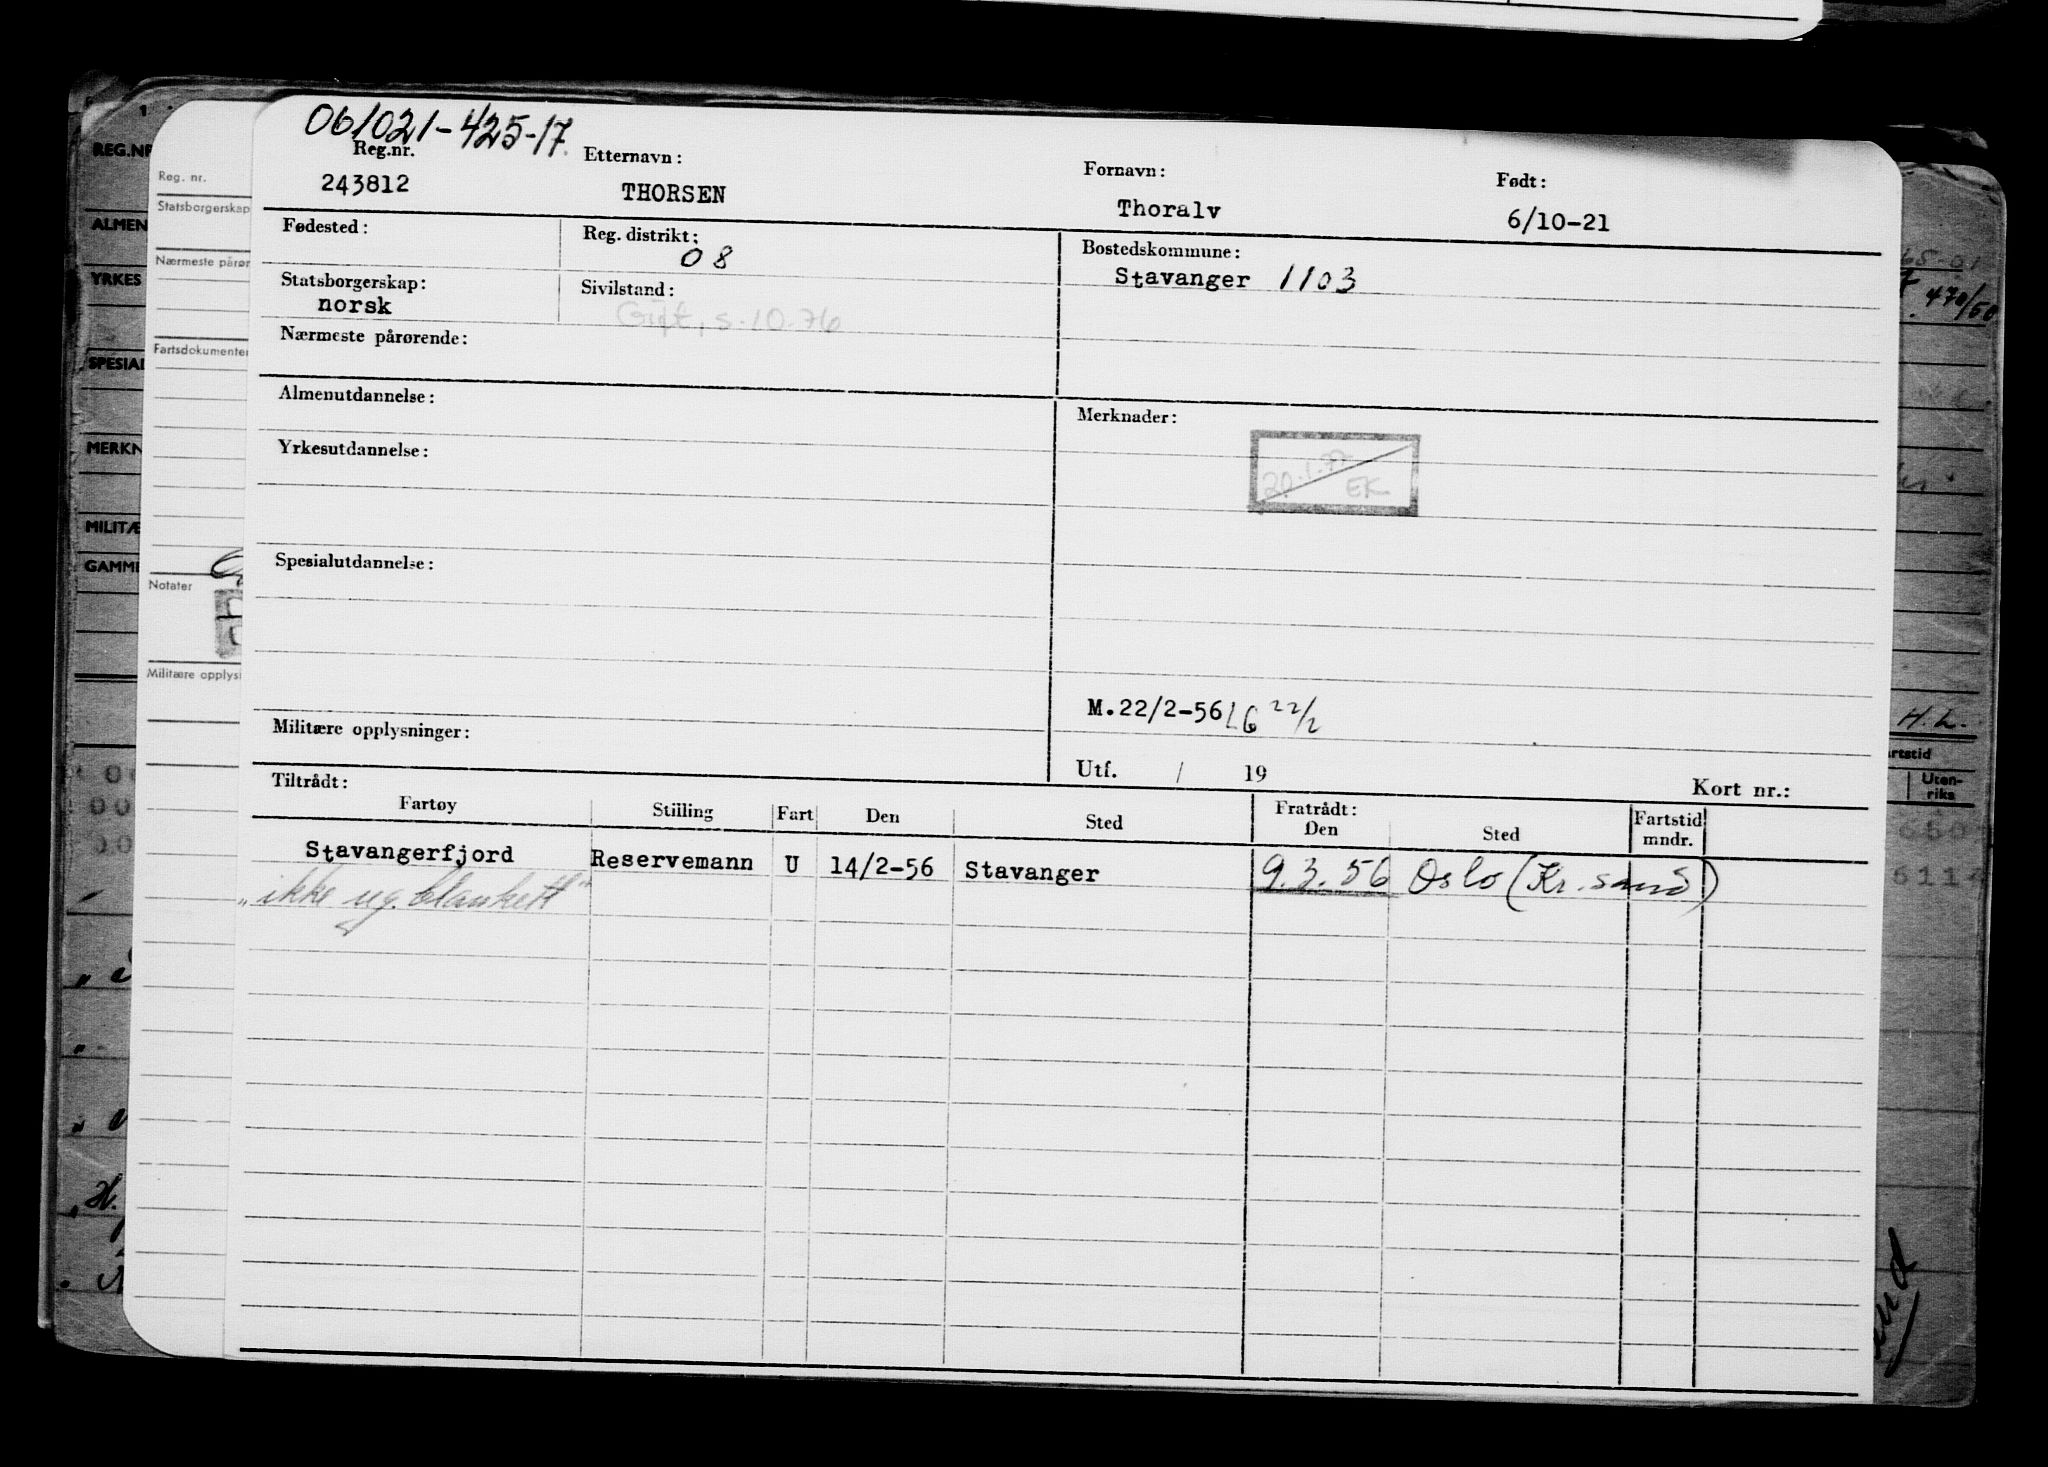 061021-425-17
Reg.nr.
243812
Etternavn:
THORSEN
Fornavn:
Thoralv
Født:
6/10-21
Fødested:
Reg. distrikt:
08
Bostedskommune:
Stavanger 1103
Statsborgerskap:
norsk
Sivilstand:
Gift, s.10.76
Nærmeste pårørende:
Almenutdannelse:
Merknader:
20.1.77
EK
Yrkesutdannelse:
Spesialutdannelse:
M.22/2-56 LG 22/2
Militære opplysninger:
Utf. / 19
Kort nr.:
Tiltrådt:
Fartøy Stilling Fart Den Sted
Fratrådt:
Den Sted
Fartstid
mndr.
Stavangerfjord Reservemann U 14/2-56 Stavanger 9.3.56 Oslo (Kr. sand)
"ikke ug. blankett"
REG.NR
ALMEN
YRKES
SPESIAL
MERKN
MILITÆ
GAMME
Reg. nr.
Statsborgerskap
Nærmeste pårør
Fartsdokumenter
Notater
Militære opplysi
65-01
470/50
H.L.
artstid
Uten-
riks